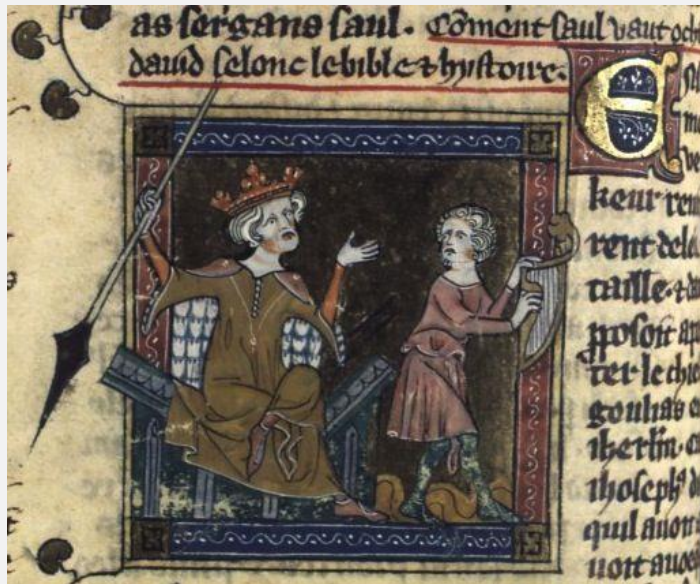 as sergans saul. Cōment saul vaut och
dauid selonc le bible & hystoire.
E
keur ren
rent de la
taille. &
pposoit a
ter le chie
goulias
iherlm. e
ioseph
quil auon
uoit auoe